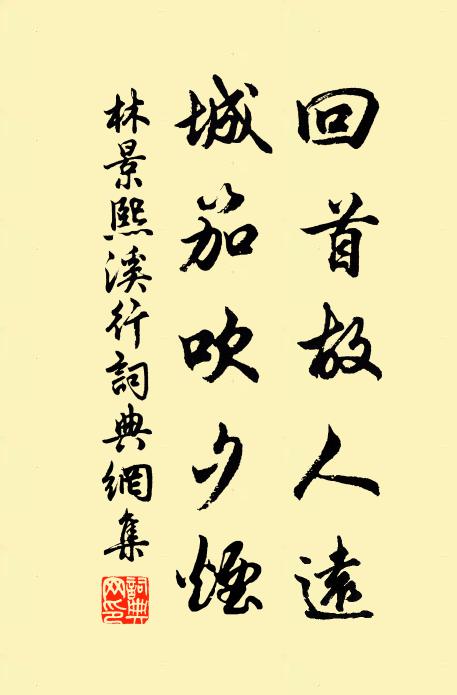 回首故人遠
城笳吹夕煙
林景熙溪行詞典網集
詞典網印